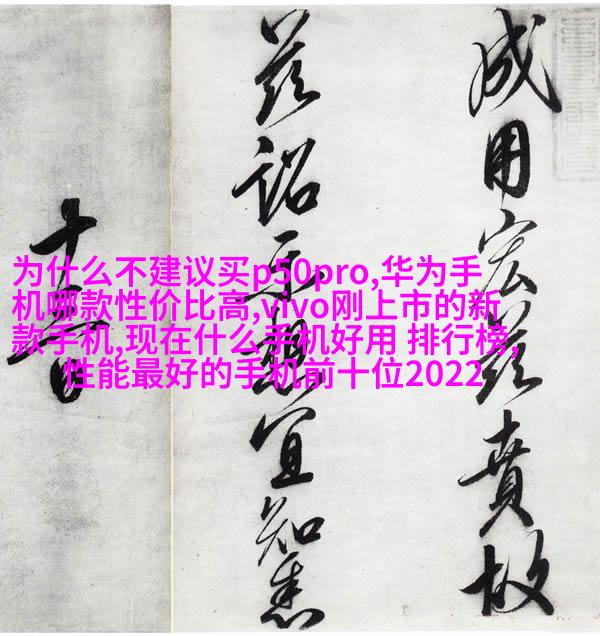 成用宏茲賁故
茲詔示想宜知悉
十一日
为什么不建议买p50pro,华为手
机哪款性价比高,vivo刚上市的新
款手机,现在什么手机好用 排行榜,
性能最好的手机前十位2022